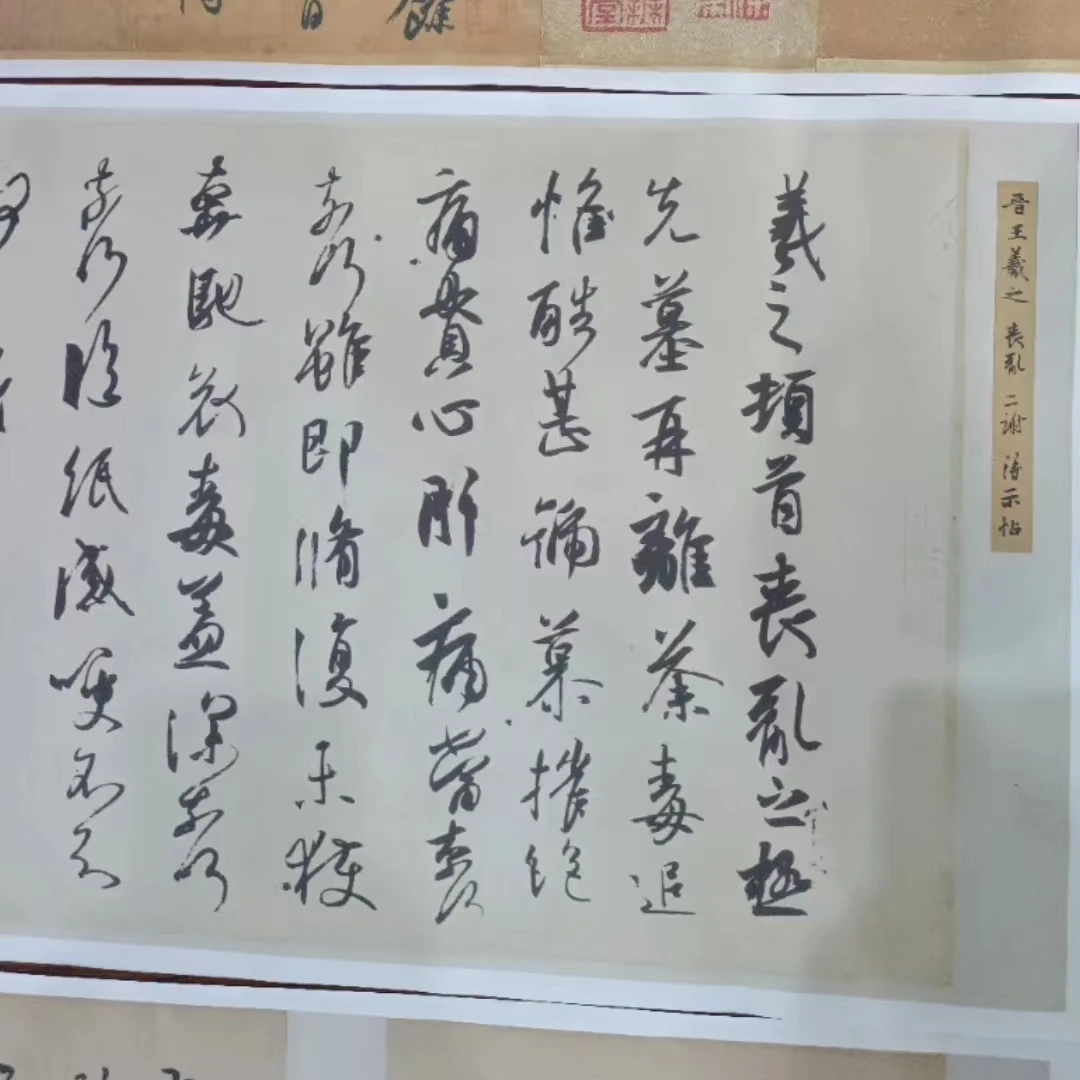 晉王羲之 喪亂 二謝 得示帖
羲之頓首喪亂之極
先墓再離荼毒追
惟酷甚號慕摧絶
痛貫心肝痛當奈何
奈何雖即脩復未獲
奔馳哀毒益深奈何
奈何臨紙感哽不知